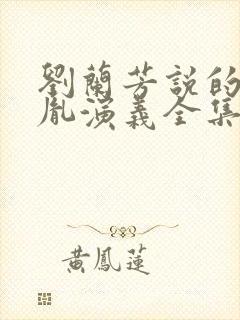 劉蘭芳說的
胤演義全集
黃鳳蓮